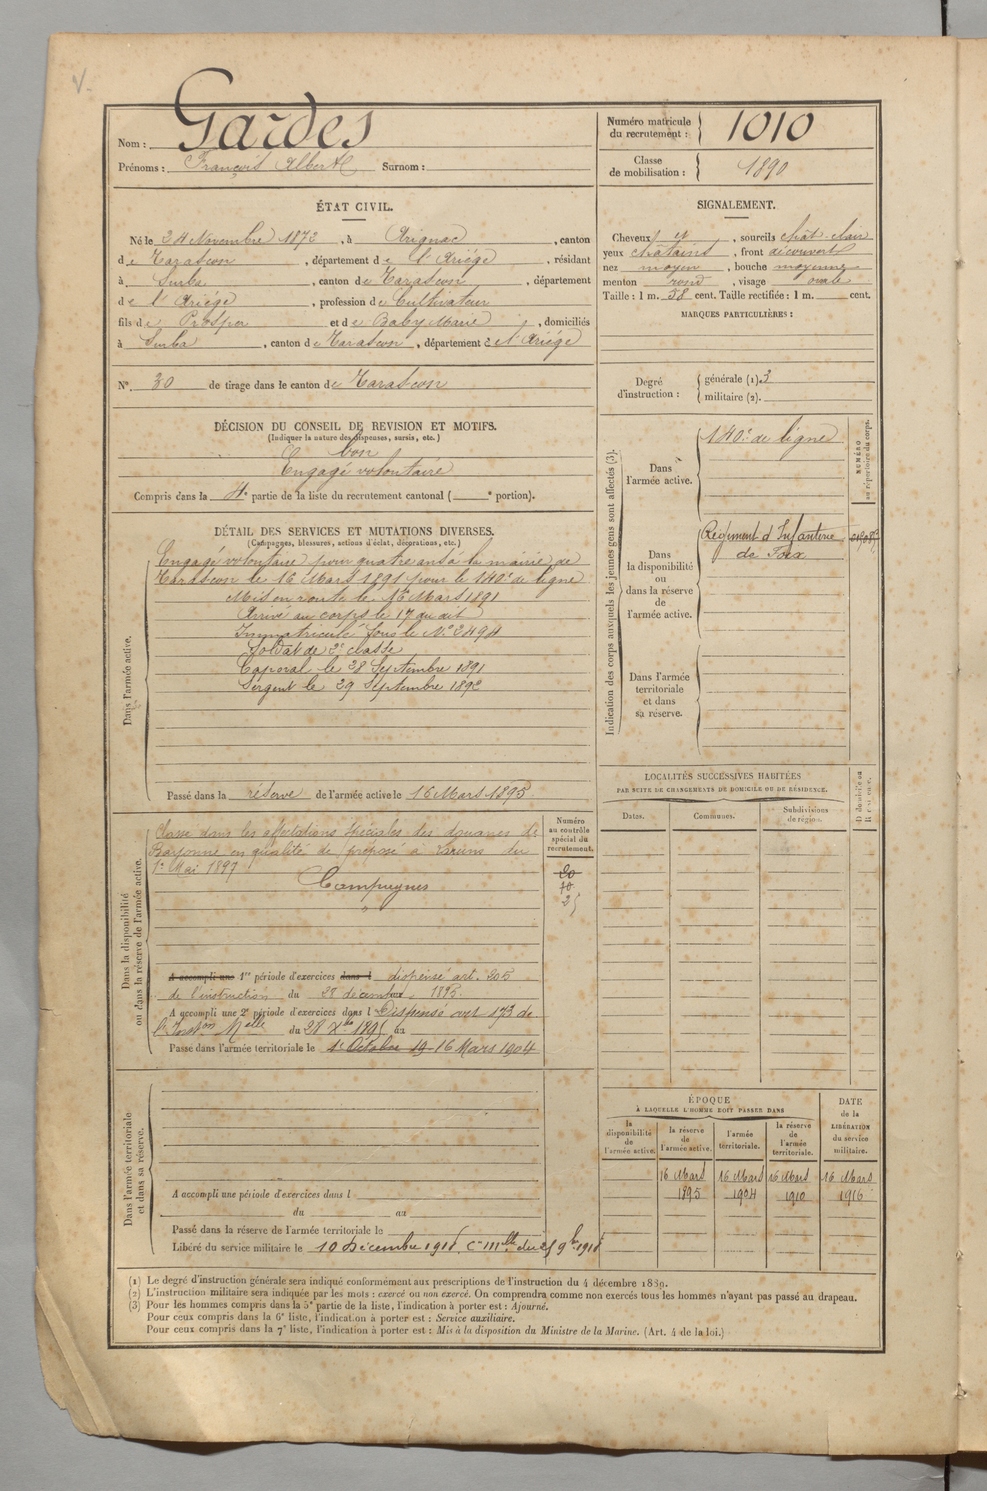 Nom : Gardes
Prénoms : François Albert Surnom :
Numéro matricule du recrutement : 1010
Classe de mobilisation : 1890
ÉTAT CIVIL.
Né le 24 Novembre 1872, à Arignac, canton
de Tarascon, département de l'Ariége, résidant
à Surba, canton de Tarascon, département
de l'Ariége, profession de Cultivateur
fils de Prosper et de Baby Marie, domiciliés
à Surba, canton de Tarascon, département de l'Ariége
N° 30 de tirage dans le canton de Tarascon
SIGNALEMENT.
Cheveux et, sourcils chât clair
yeux châtains, front découvert
nez moyen, bouche moyenne
menton rond, visage ovale
Taille : 1 m. 58 cent. Taille rectifiée : 1 m. cent.
MARQUES PARTICULIÈRES :
Degré d'instruction :
générale (1). 3
militaire (2).
DÉCISION DU CONSEIL DE REVISION ET MOTIFS.
(Indiquer la nature des dispenses, sursis, etc.)
bon
Engagé volontaire
Compris dans la 4e partie de la liste du recrutement cantonal ( e portion).
DÉTAIL DES SERVICES ET MUTATIONS DIVERSES.
(Campagnes, blessures, actions d'éclat, décorations, etc.)
Dans l'armée active.
Engagé volontaire pour quatre ans à la mairie de
Tarascon le 16 Mars 1891 pour le 140e de ligne
Mis en route le 16 Mars 1891
Arrivé au corps le 17 du dit
Immatriculé sous le N° 2494
Soldat de 2e classe
Caporal le 28 Septembre 1891
Sergent le 29 Septembre 1892
Passé dans la réserve de l'armée active le 16 Mars 1895
Indication des corps auxquels les jeunes gens sont affectés (3).
NUMÉRO au répertoire du corps.
Dans l'armée active.
140e de ligne
Dans la disponibilité ou dans la réserve de l'armée active.
Régiment d'Infanterie
de Foix
Dans l'armée territoriale et dans sa réserve.
LOCALITÉS SUCCESSIVES HABITÉES
PAR SUITE DE CHANGEMENTS DE DOMICILE OU DE RÉSIDENCE.
Dates. Communes. Subdivisions de région. D domicile ou R résidence.
Dans la disponibilité ou dans la réserve de l'armée active.
Numéro au contrôle spécial du recrutement.
Classé dans les affectations spéciales des douanes de
Bayonne en qualité de préposé à Laruns du
1er Mai 1897
Campagnes
A accompli une 1re période d'exercices dans l dispensé art. 205
de l'instruction du 28 décembre 1895
A accompli une 2e période d'exercices dans l Dispensé
du 28 Xbre 1895 au
Passé dans l'armée territoriale le 1e Octobre 19 16 Mars 1904
Dans l'armée territoriale et dans sa réserve.
A accompli une période d'exercices dans l
du au
Passé dans la réserve de l'armée territoriale le
Libéré du service militaire le 10 Décembre 1918
ÉPOQUE
À LAQUELLE L'HOMME DOIT PASSER DANS
la disponibilité de l'armée active. la réserve de l'armée active. l'armée territoriale. la réserve de l'armée territoriale. DATE de la LIBÉRATION du service militaire.
16 Mars 16 Mars 16 Mars 16 Mars
1895 1904 1910 1916
(1) Le degré d'instruction générale sera indiqué conformément aux prescriptions de l'instruction du 4 décembre 1889.
(2) L'instruction militaire sera indiquée par les mots : exercé ou non exercé. On comprendra comme non exercés tous les hommes n'ayant pas passé au drapeau.
(3) Pour les hommes compris dans la 5e partie de la liste, l'indication à porter est : Ajourné.
Pour ceux compris dans la 6e liste, l'indication à porter est : Service auxiliaire.
Pour ceux compris dans la 7e liste, l'indication à porter est : Mis à la disposition du Ministre de la Marine. (Art. 4 de la loi.)